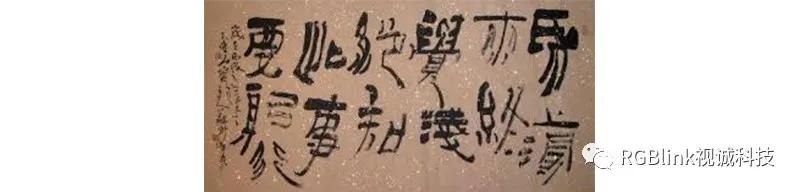 帋上得
来終
覺淺
絕知
此事
要躬行
RGBlink视诚科技